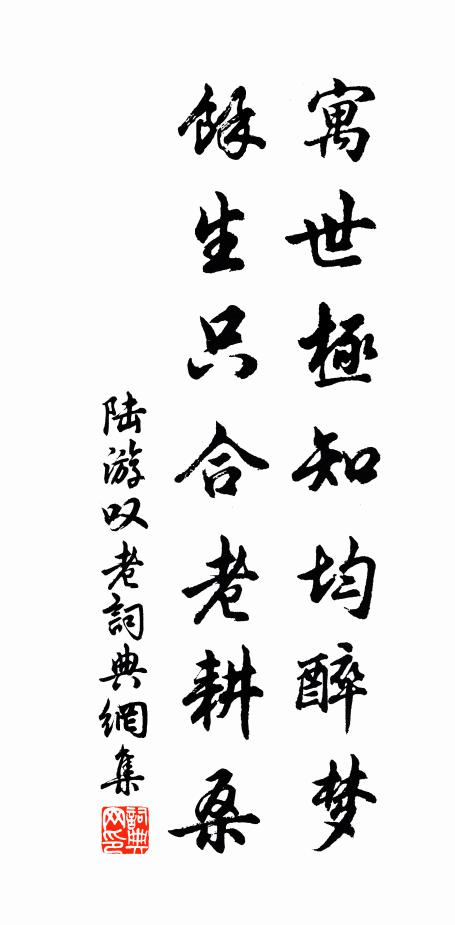 寓世極知均醉梦
餘生只合老耕桑
陆游叹老詞典網集
詞典网印